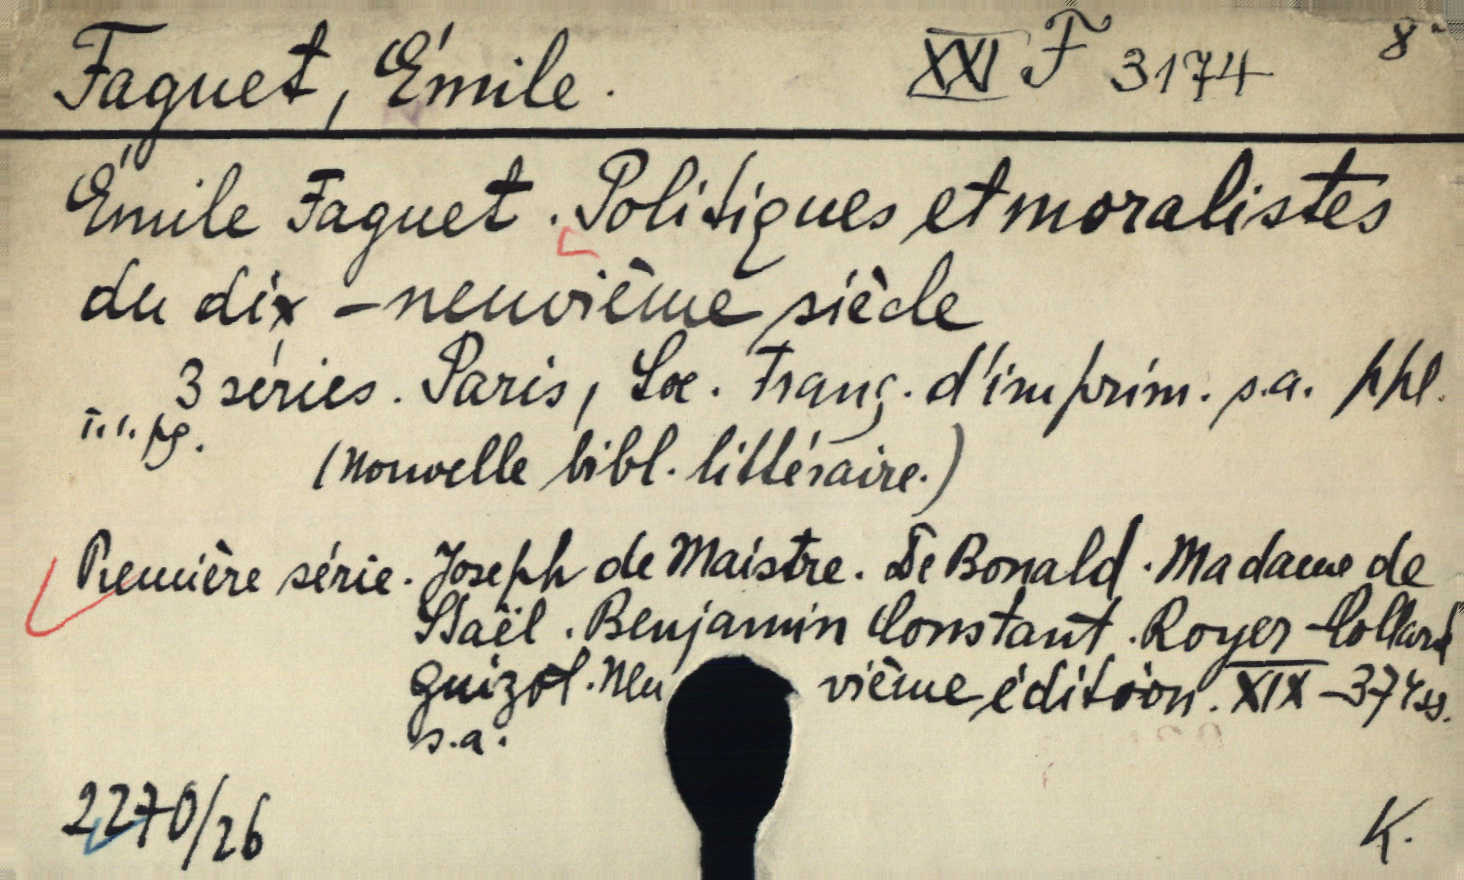 Faguet, Émile. XXI F 3174 8°
Émile Faguet. Politiques et moralistes
du dix-neuvième siècle
3 séries. Paris, Soc. Franç. d'imprim. s.a. ppl.
(Nouvelle bibl. littéraire.)
Première série. Joseph de Maistre. De Bonald. Madame de
Staël. Benjamin Constant. Royer-Collard
Guizot. Neuvième édition. XIX-374ss.
s.a.
2270/26 K.